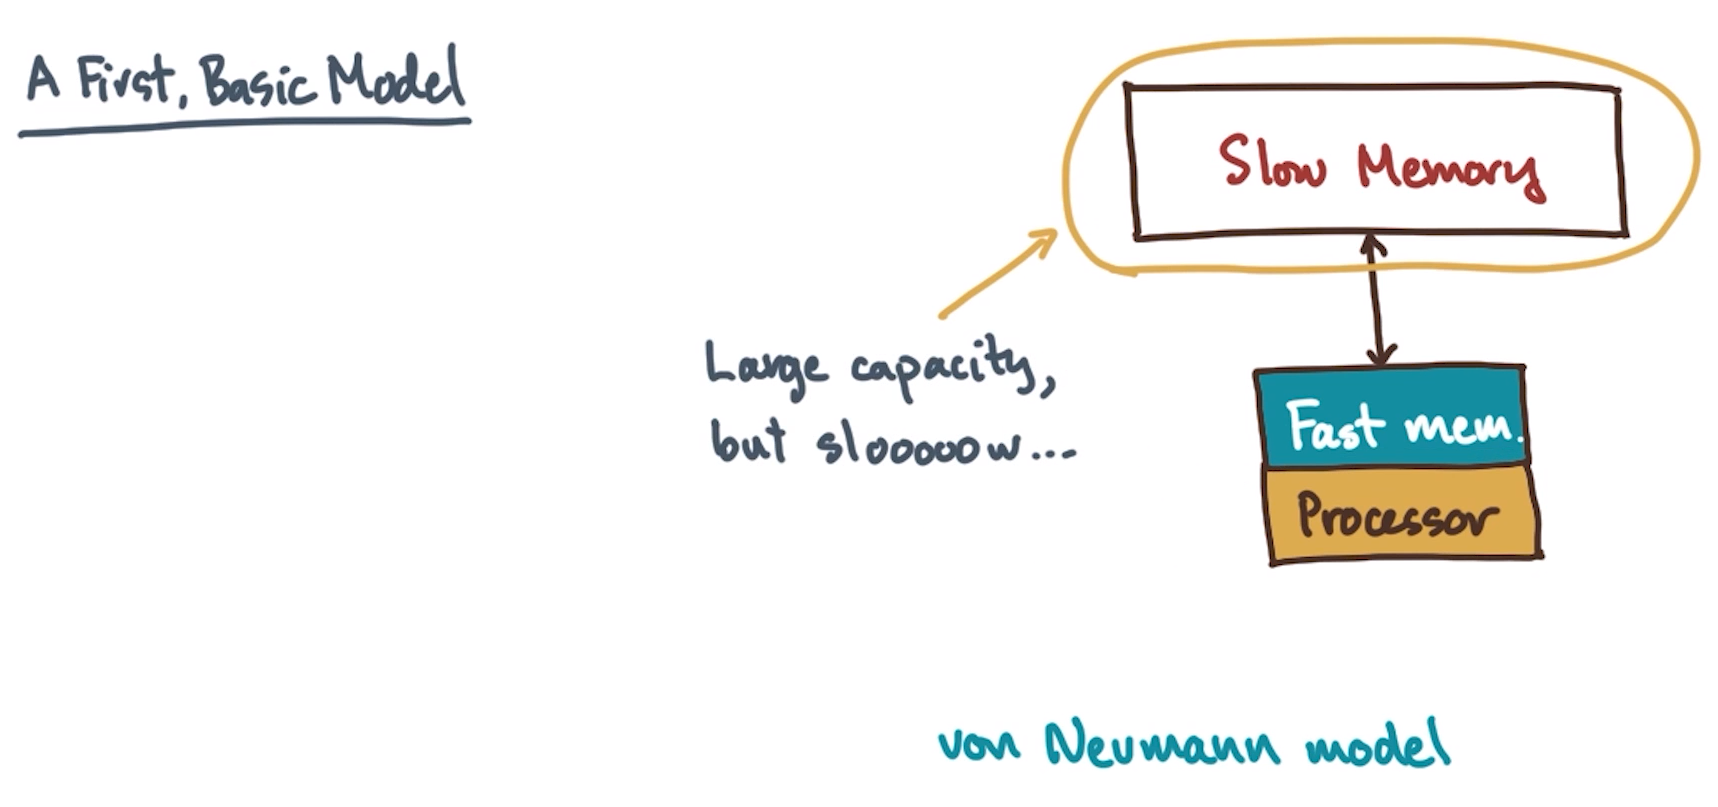 A First, Basic Model
Slow Memory
Large capacity,
but slooooow...
Fast mem.
Processor
von Neumann model